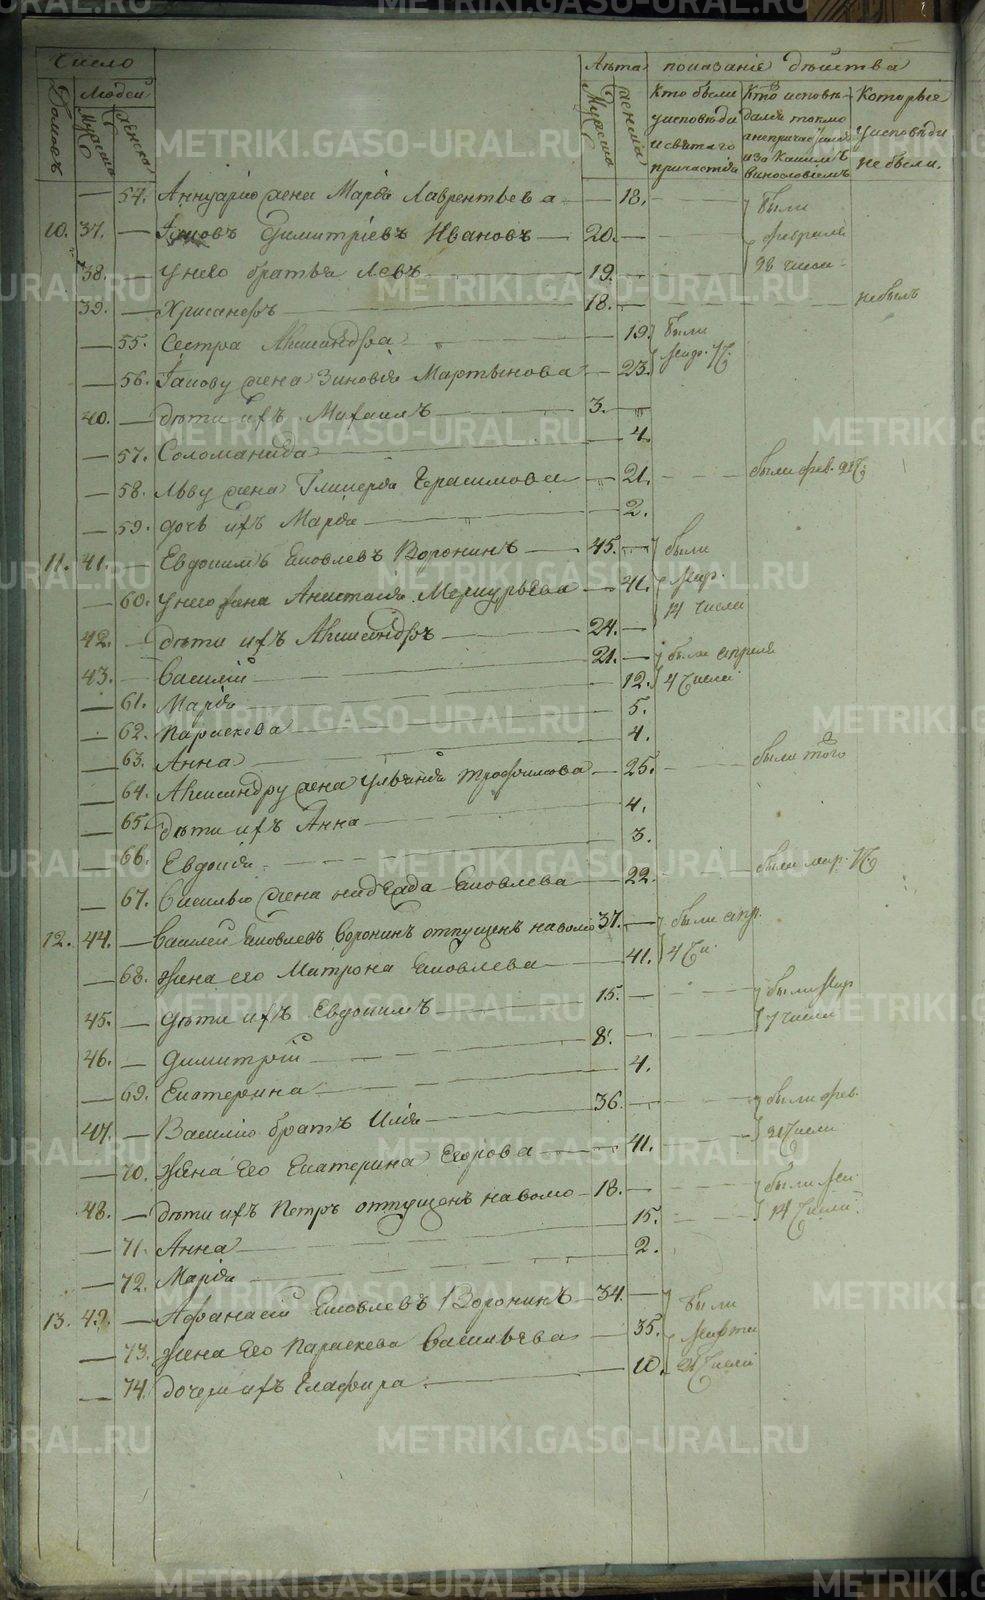 Число
Лѣта показаніе дѣйства
Домовъ
Людей
Мужеска
женска
Мужеска
женска
Кто были
у исповѣди
и святаго
причастія
Кто исповѣ-
дался токмо
а не причастился
и за какимъ
винословіемъ
Которые
у исповѣди
не были.
— 57. Аннуарію жена Марѳа Лаврентьева — 18. были
10. 37. — Іаковъ Димитріевъ Ивановъ — 20. — февраля
38. — У него братья Левъ 19. — 28 числа
39. — Хрисанѳъ 18. — не былъ
— 55. Сестра Александра — 19. были
— 56. Іакову жена Зиновія Мартынова — 23.
40. — дѣти ихъ Михаилъ 3. —
— 57. Соломанида — 4.
— 58. Льву жена Гликерія Герасимова — 21. были фев.
— 59. дочь ихъ Марѳа — 2.
11. 41. — Евдокимъ Яковлевъ Воронинъ — 45. — были
— 60. У него жена Анастасія Меркурьева — 41. мар.
42. — дѣти ихъ Александръ 24. — 14 числа
43. — Василій 21. — были апреля
— 61. Марѳа — 12. 4 числа
— 62. Параскева — 5.
— 63. Анна — 4.
— 64. Александру жена Ульянія Трофимова — 25. были того
— 65. дѣти ихъ Анна — 4.
— 66. Евдокія — 3.
— 67. Василью жена Яковлева — 22. были мар.
12. 44. — Василей Яковлевъ Воронинъ отпущенъ на волю 37. — были апр.
— 68. жена его Матрона Яковлева — 41. 4 чи.
45. — дѣти ихъ Евдокимъ 15. — были мар
46. — Димитрій 8. — 7 числа
— 69. Екатерина — 4.
47. — Василію братъ Илія — 36. — были фев.
— 70. жена его Екатерина Егорова — 41. числа
48. — дѣти ихъ Петръ отпущенъ на волю — 18. — были
— 71. Анна — 15. 14 числа
— 72. Марѳа — 2.
13. 49. — Афанасій Яковлевъ Воронинъ — 34. — были
— 73. жена его Параскева Васильева — 35. марта
— 74. дочери ихъ Глафира — 10. числа
METRIKI.GASO-URAL.RU